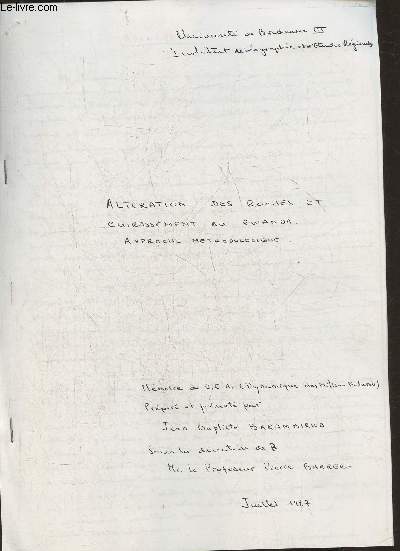 le-livre.com
Université de Bordeaux III
Institut de Géographie et d'Etudes Régionales
ALTERATION DES ROCHES ET
CUIRASSEMENT AU RWANDA.
APPROCHE METHODOLOGIQUE
Mémoire de D.E.A. (Dynamique des Milieux
Préparé et présenté par
Jean Baptiste
Sous la direction de
Mr. le Professeur Pierre BARRERE
Juillet 1987